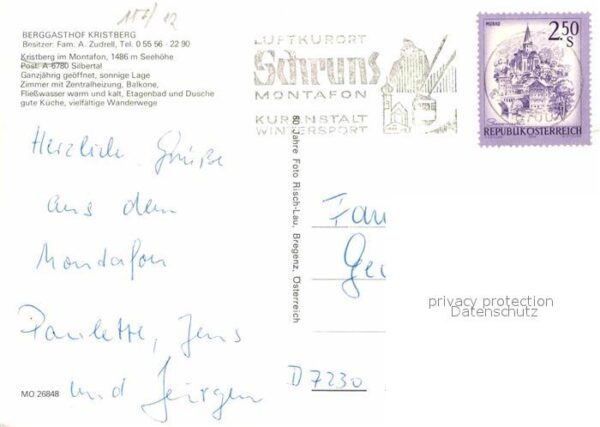 157/12
BERGGASTHOF KRISTBERG
Besitzer: Fam. A. Zudrell, Tel. 0 55 56 - 22 90
Kristberg im Montafon, 1486 m Seehöhe
Post: A-6780 Silbertal
Ganzjährig geöffnet, sonnige Lage
Zimmer mit Zentralheizung, Balkone,
Fließwasser warm und kalt, Etagenbad und Dusche
gute Küche, vielfältige Wanderwege
LUFTKURORT
Schruns
MONTAFON
KURANSTALT
WINTERSPORT
MURAU
2.50
S
REPUBLIK ÖSTERREICH
80 Jahre Foto Risch-Lau, Bregenz, Österreich
Herzliche Grüße
aus dem
Montafon
Paulette, Jens
und Jürgen
Fam
Ge
D 7230
privacy protection
Datenschutz
MO 26848